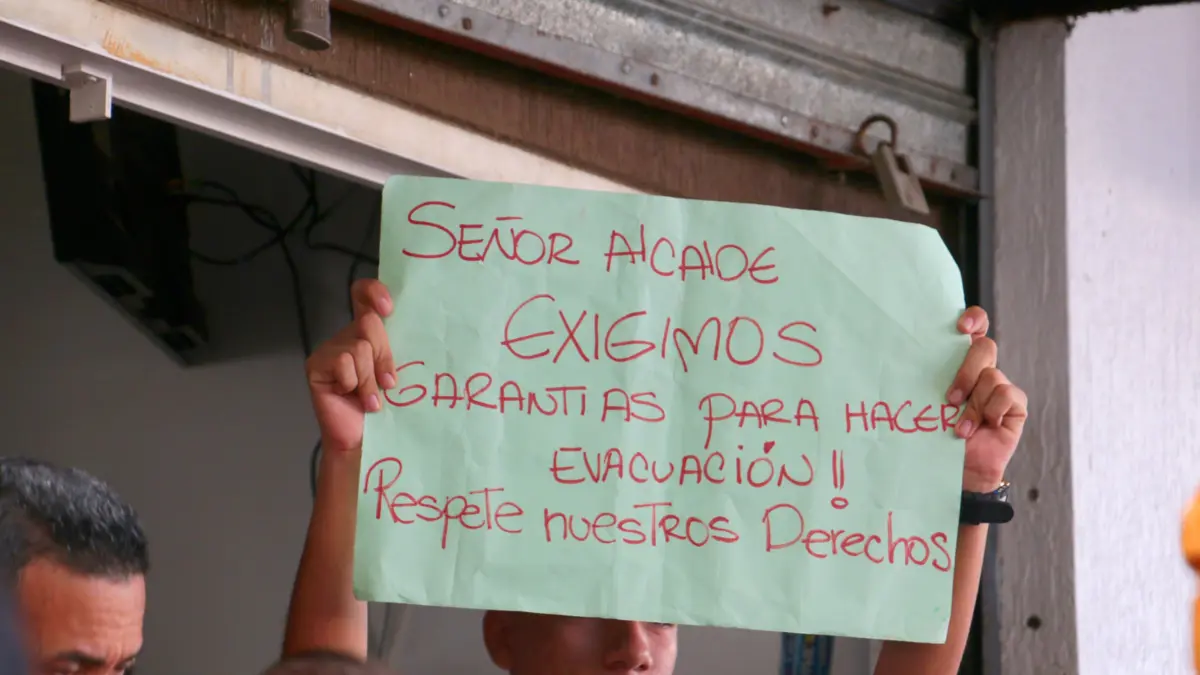 SEÑOR AlCAlDE
EXIGIMOS
GARANTIAS PARA HACER
EVACUACIÓN!!
Respete nuestros Derechos